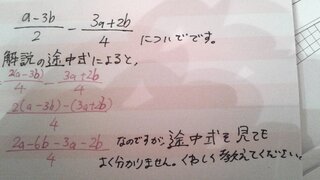 (a-3b)/2 - (3a+2b)/4 についてです。
解説の途中式によると,
2(a-3b)/4 - (3a+2b)/4
(2(a-3b)-(3a+2b))/4
(2a-6b-3a-2b)/4 なのですが、途中式を見ても
よく分かりません。くわしく教えてください。